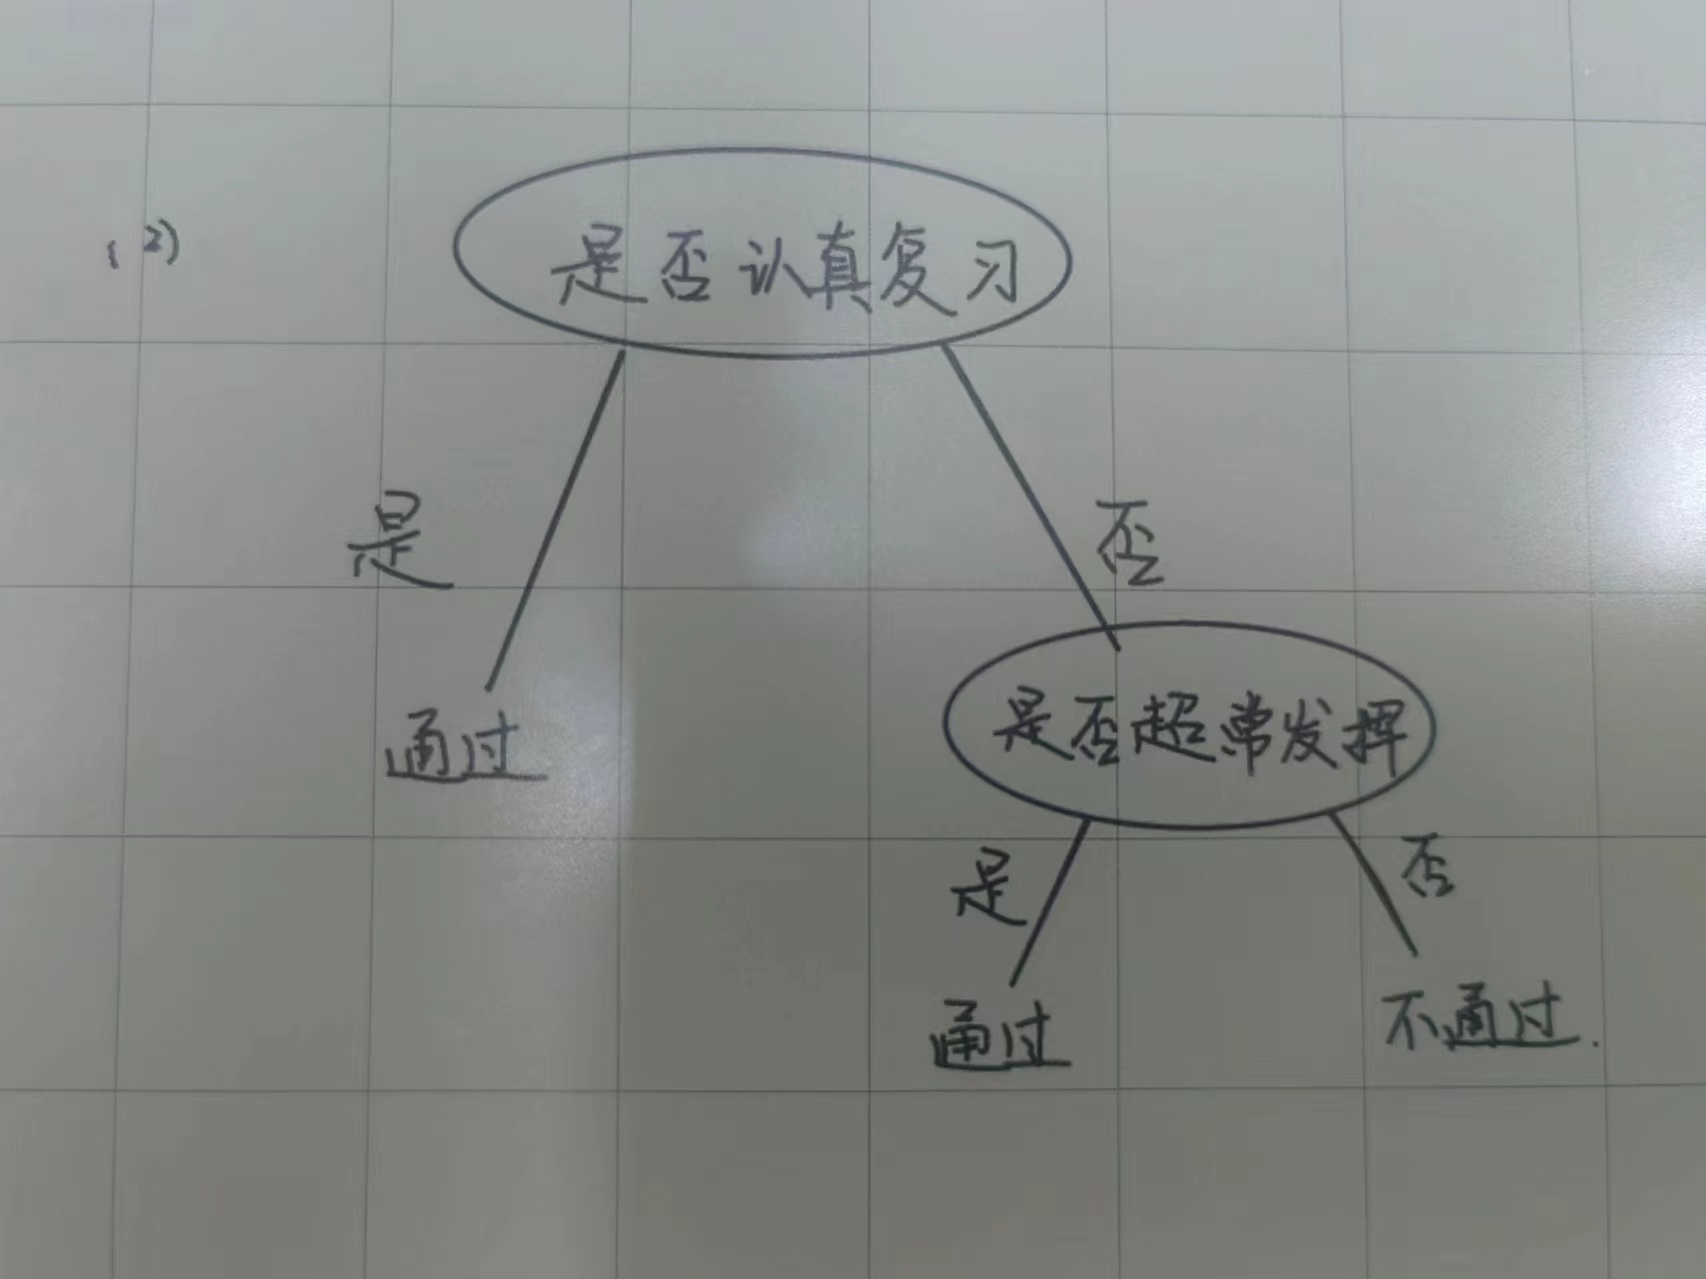 (2)
是否认真复习
是
否
通过
是否超常发挥
是
否
通过
不通过.